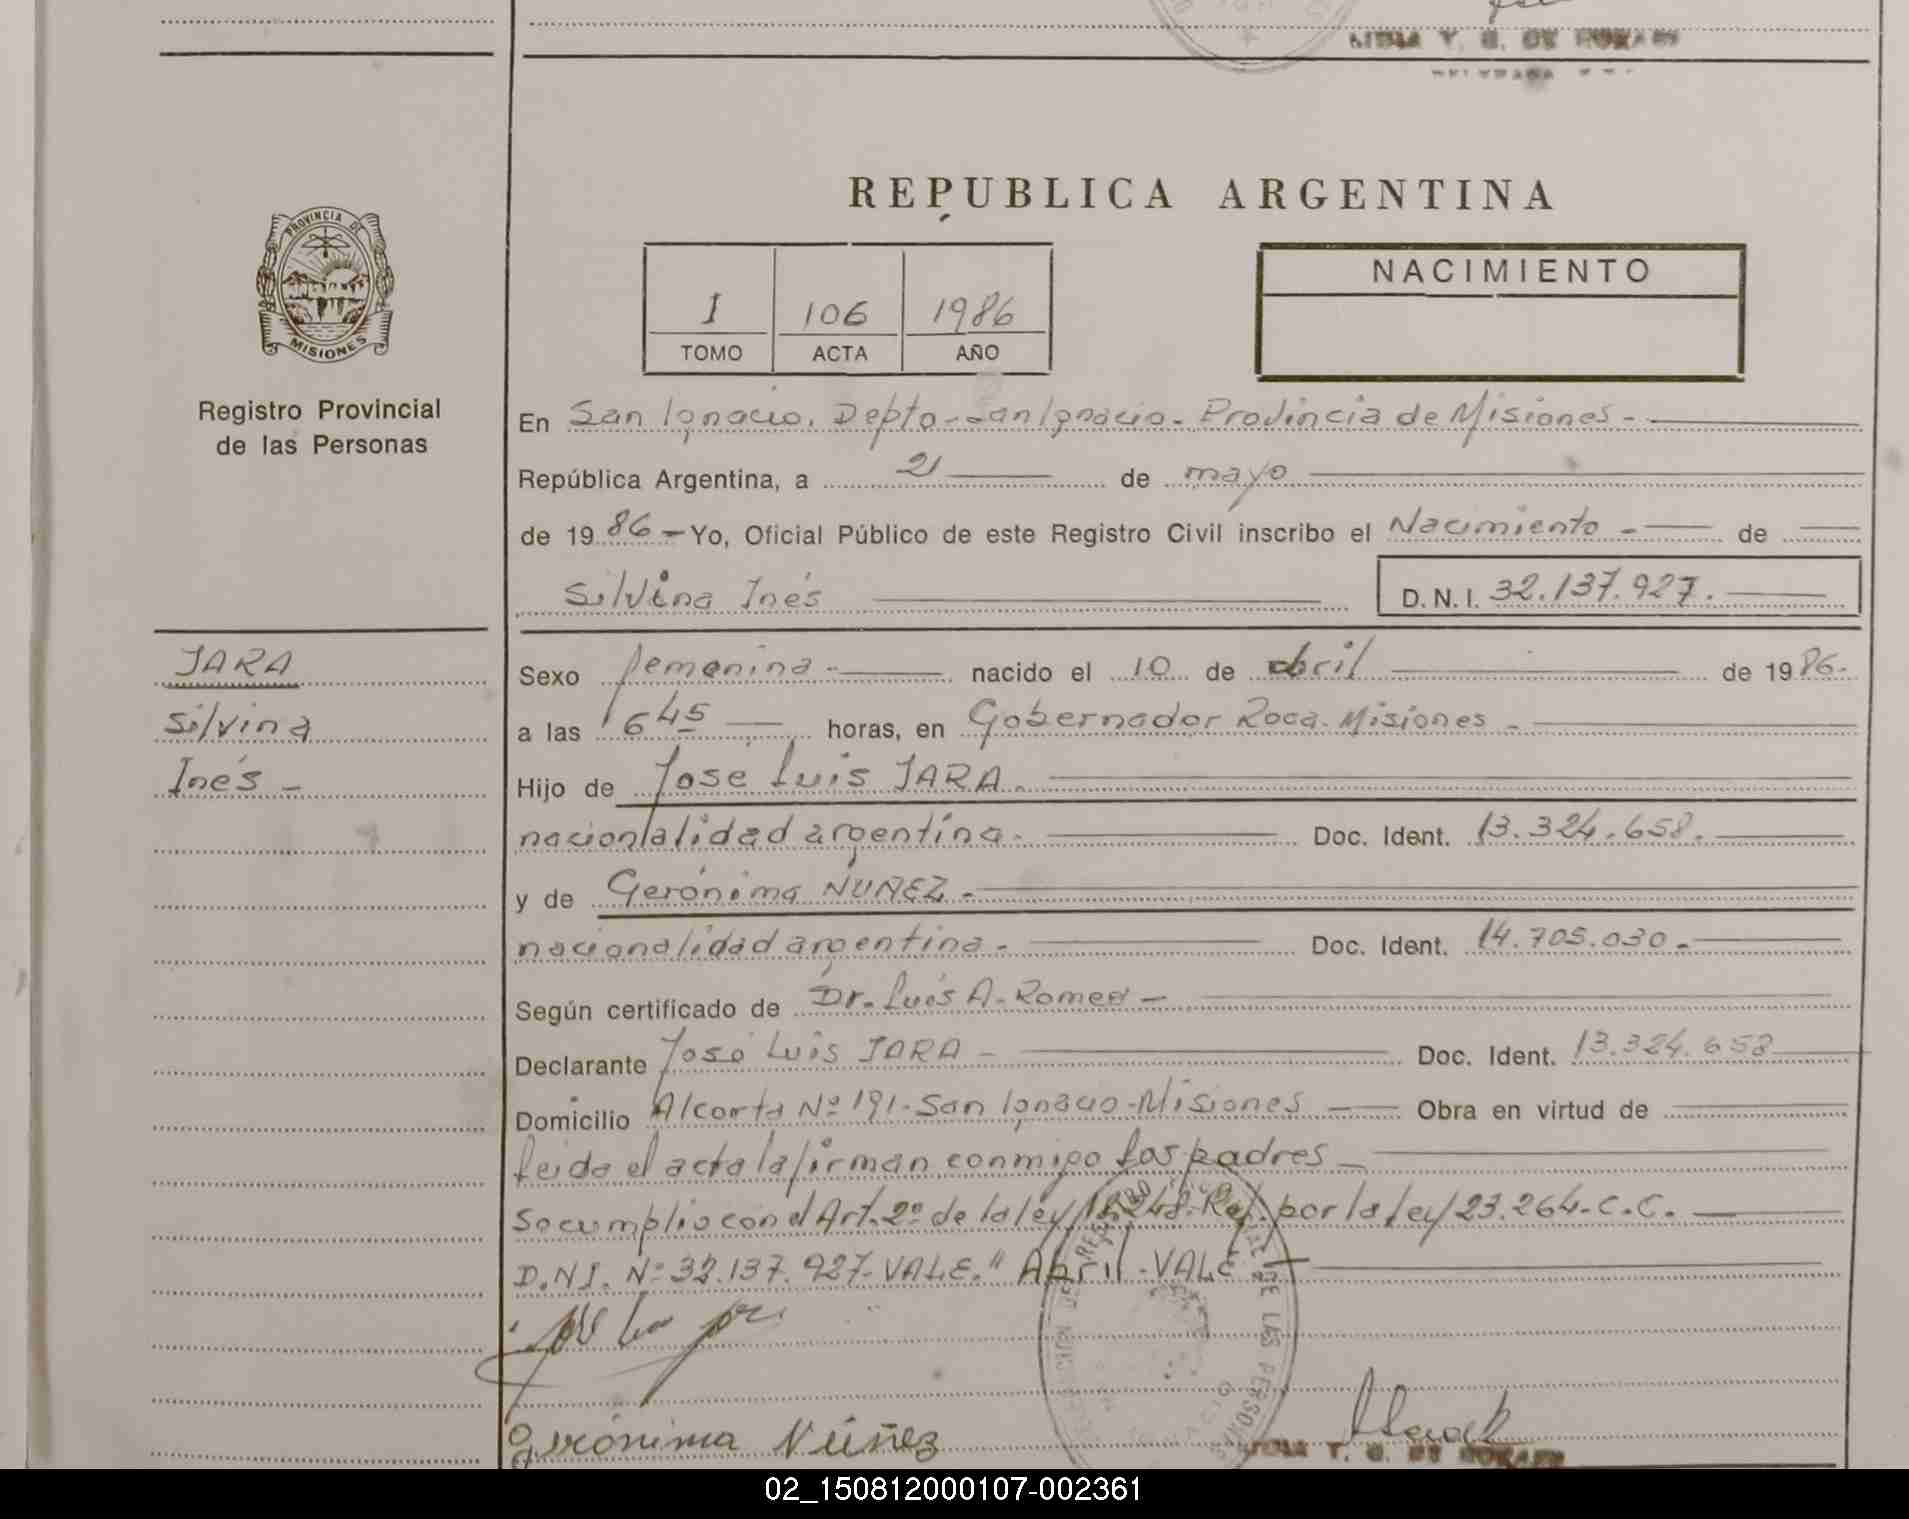 REPUBLICA ARGENTINA
PROVINCIA DE
MISIONES
Registro Provincial
de las Personas
I 106 1986
TOMO ACTA AÑO
NACIMIENTO
En San Ignacio. Depto-San Ignacio- Provincia de Misiones-
República Argentina, a 21 de mayo
de 19 86 - Yo, Oficial Público de este Registro Civil inscribo el Nacimiento - de
Silvina Inés D. N. I. 32.137.927.
JARA
Silvina
Inés -
Sexo femenina - nacido el 10 de abril de 19 86.
a las 6 45 horas, en Gobernador Roca. Misiones -
Hijo de José Luis JARA.
nacionalidad argentina. Doc. Ident. 13.324.658.
y de Gerónima NUÑEZ -
nacionalidad argentina - Doc. Ident. 14.705.030 -
Según certificado de Dr. Luis A. Romeo -
Declarante José Luis JARA - Doc. Ident. 13.324.658
Domicilio Alcorta Nº 191 - San Ignacio - Misiones - Obra en virtud de
Leida el acta la firman conmigo los padres -
Se cumplio con el Art. 2º de la ley 18.248. Ref. por la ley 23.264 - C.C.
D.N.I. Nº 32.137.927 - VALE. " Abril - VALE
Gerónima Núñez
02_150812000107-002361